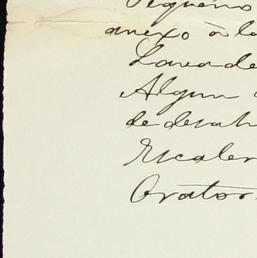 Pequeno
anexo à la
Lava de
Algun
de desah
Escaler
Orator